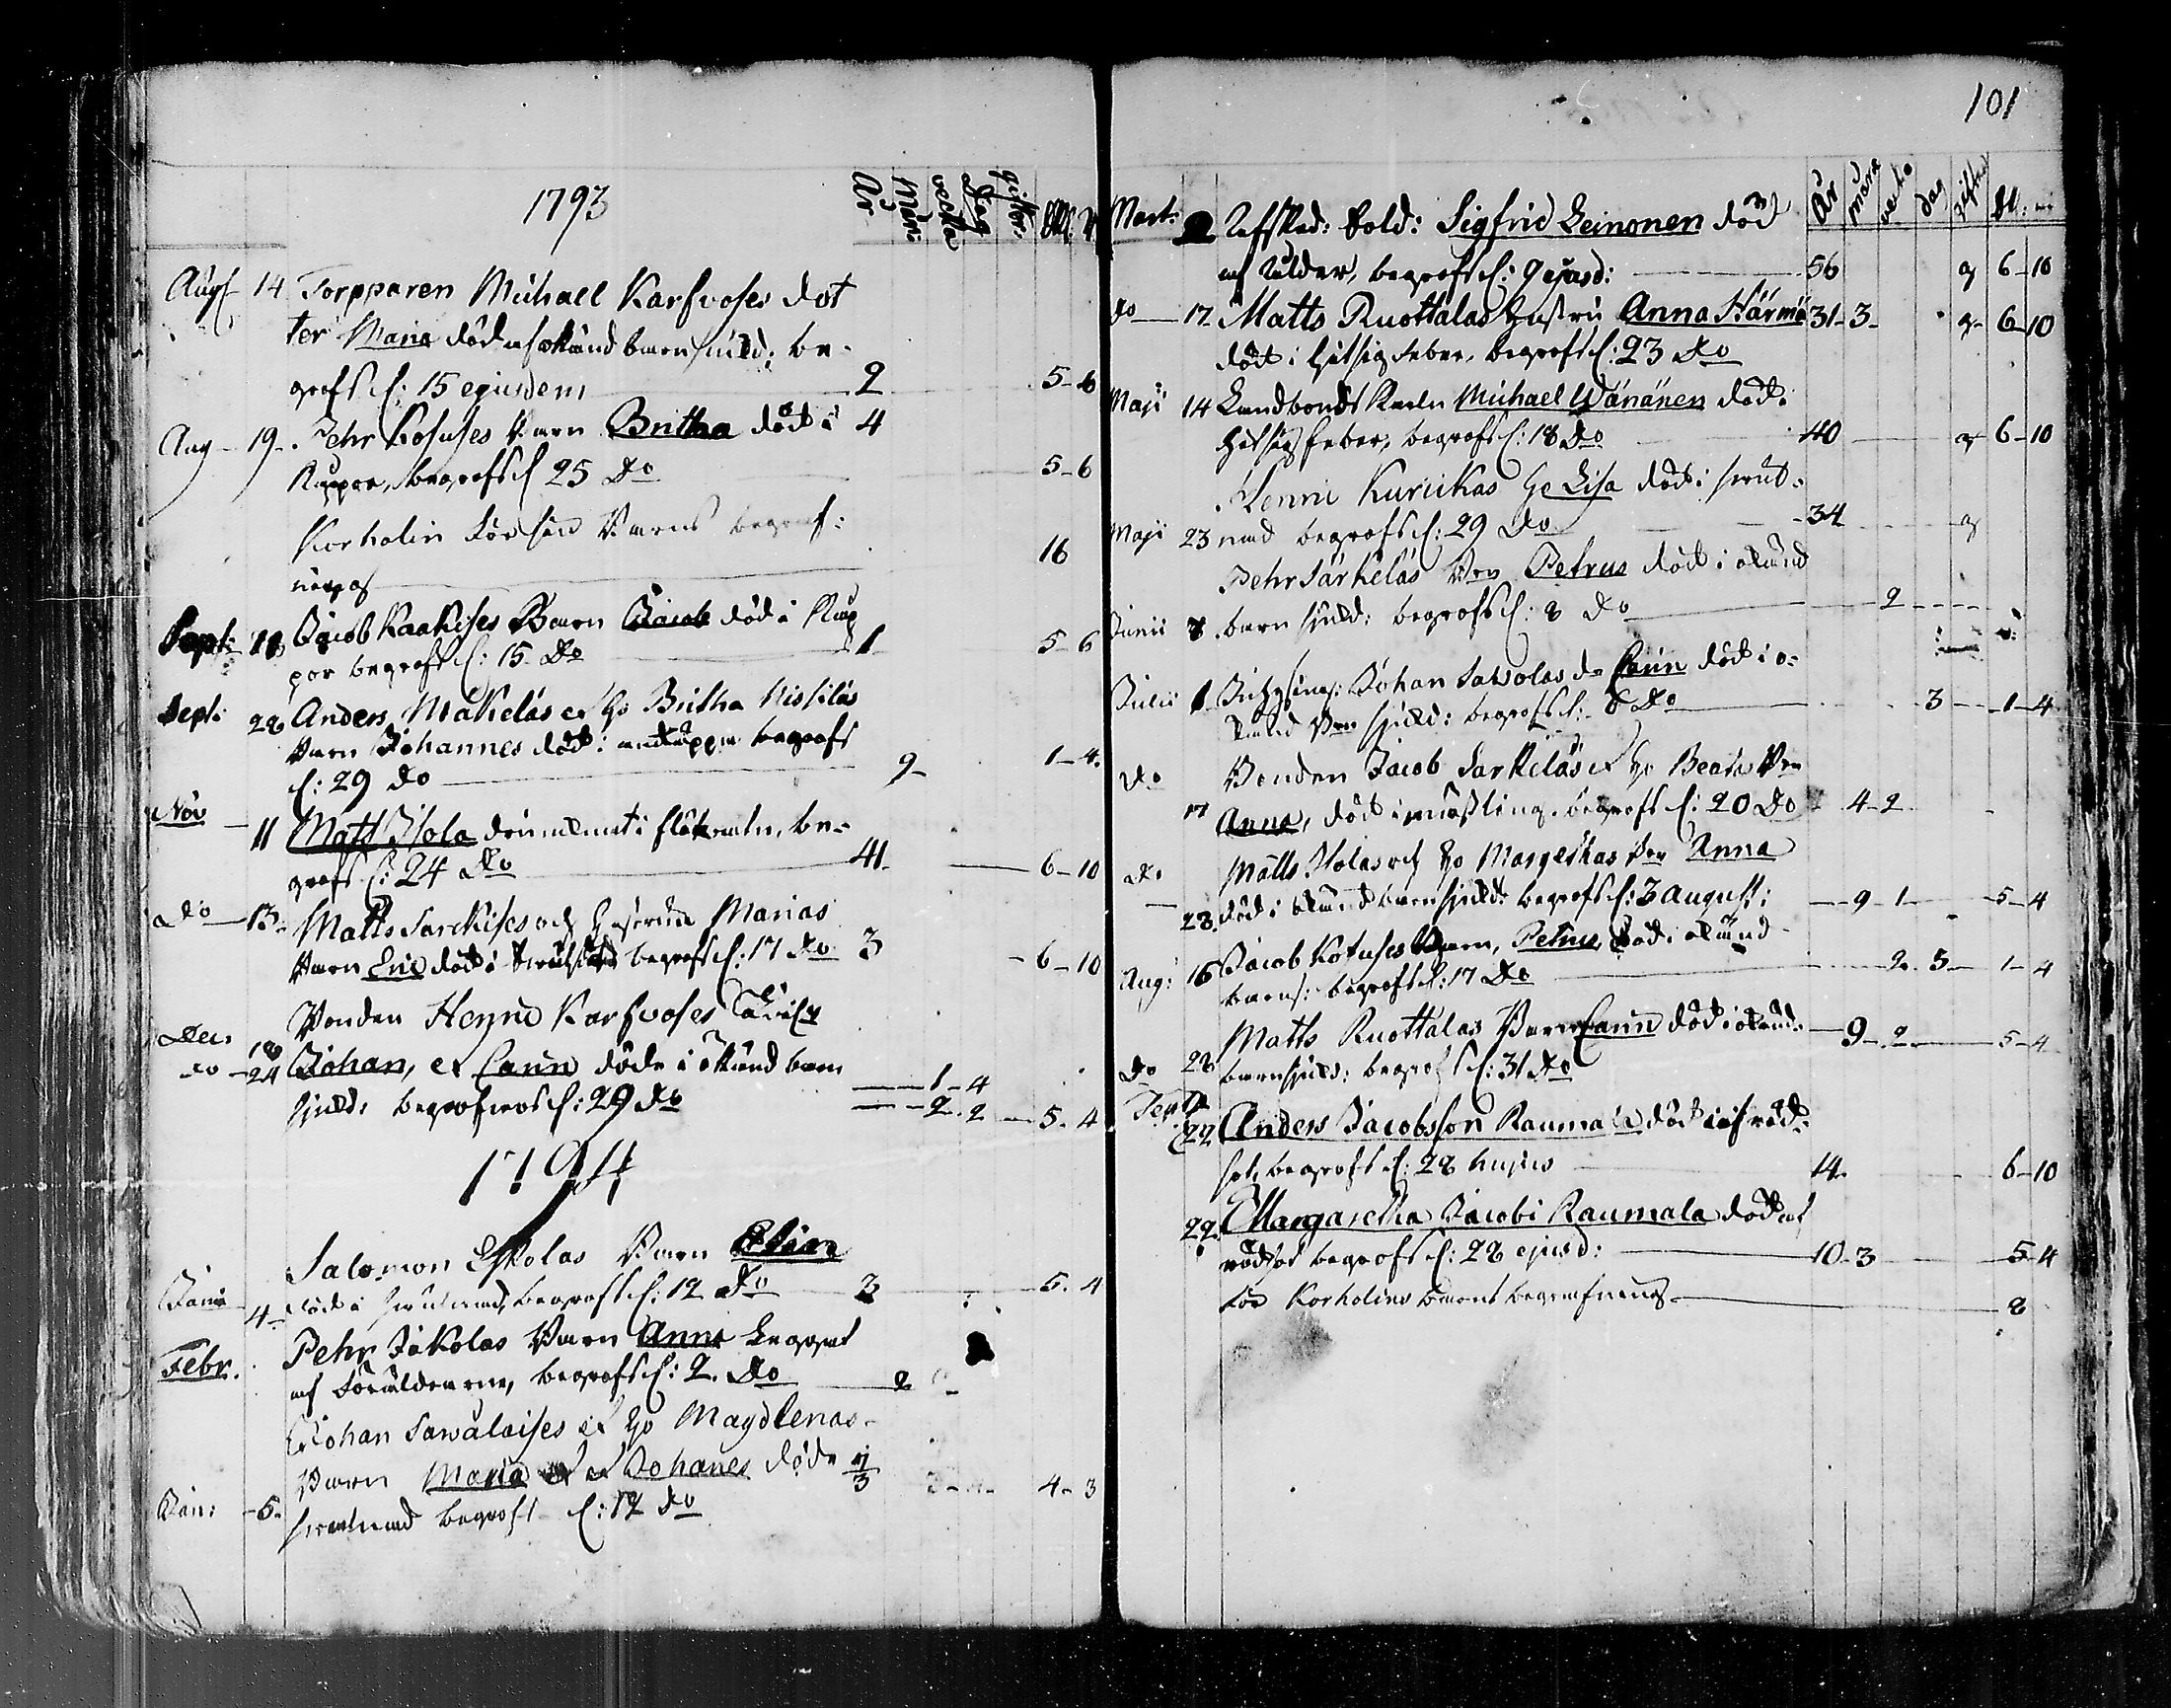 1793
År Mån: vecka Dag giftor:
Aug 14 Torpparen Michael Karfvoses dot
ter Maria död af okänd barnsjukd: be-
grofs d: 15 ejusdem 2 5-6
Aug 19. Pehr Kosuses Barn Britha död i 4
Kuppor, begrofs d 25 Do 5-6
Korholin för sin Barns begraf:
16
Sept: Jacob Kaakises Barn Jacob död i Kup
por begrofs d: 15 Do 1 5 6
Sept: 28 Anders Mäkeläs et Ho Britha Nissiläs
Barn Johannes död i begrofs
d: 29 Do 9- 1-4.
Nov 11 Matt Isola be-
grofs d: 24 Do 41. 6-10
Do 13. Matts Sarckises och Hustrus Marias
Barn Eric död i begrofs d: 17 Do 3 6-10
Bonden Henric Karfvoses
Dec. 18
do 24 Johan, et Carin döde i okänd barn
1-4
sjukd: begrofvos d: 29 Do 2.2 5.4
1794
Salomon Eskolas Barn
Janu 4. död i begrofs d: 12 Do 3 5.4
Febr. Pehr Jakolas Barn Anna
af föräldrarne, begrofs d: 2. Do 2
Johan Sawalaises et Ho Magdlenas
Barn Maria et Johanes döde 4-3
Jan: 5. begrofs d: 12 do
101
År måna vecka dag gifta
Mart: Afsked: Sold: Sigfrid Leinonen död
af ålder, begrofs d: 9 ejusd: 56 g 6-10
do 17 Matts Ruottalas hustru Anna Härmä 31-3- g- 6-10
död i hitsig feber, begrofs d: 23 Do
Maji 14 Landbonds Karln Michael Wänänen död i
hitsig feber, begrofs d: 18 Do 40 g 6-10
Henric Kurickas Ho Lisa död i
Maji 23 begrofs d: 29 Do 34 g
Pehr Särkeläs Bn Petrus död i okänd
Junii 8. barn sjukd: begrofs d: 8 Do 2
Julii 1 Johan Sawolas do Carin död i o-
känd Bn sjukd: begrofs d: 6 Do 3 1-4
Do Bonden Jacob Sarkeläs et Ho Beata Bn
17 Anna, död i mässling. begrofs d: 20 Do 4-2
Do Matts Isolas och Ho Margethas Bn Anna
23. död i okänd barnsjukd: begrofs d: 3 August: 9-1 5-4
Aug: 16 Jacob Kotuses Barn, Petrus, död i okänd
barns: begrofs d: 17 Do 2.5 1-4
Matts Ruottalas Barn Carin död i okänd 9-2 5-4
Do 28 barnsjukd: begrofs d: 31 Do
Sept
22 Anders Jacobsson Raumala död af röd-
sot, begrofs d: 28 hujus 14. 6-10
22. Margaretha Jacobi Raumala död af
rödsot begrofs d: 28 ejusd: 10-3 5-4
för Korholins barns begrafning 8